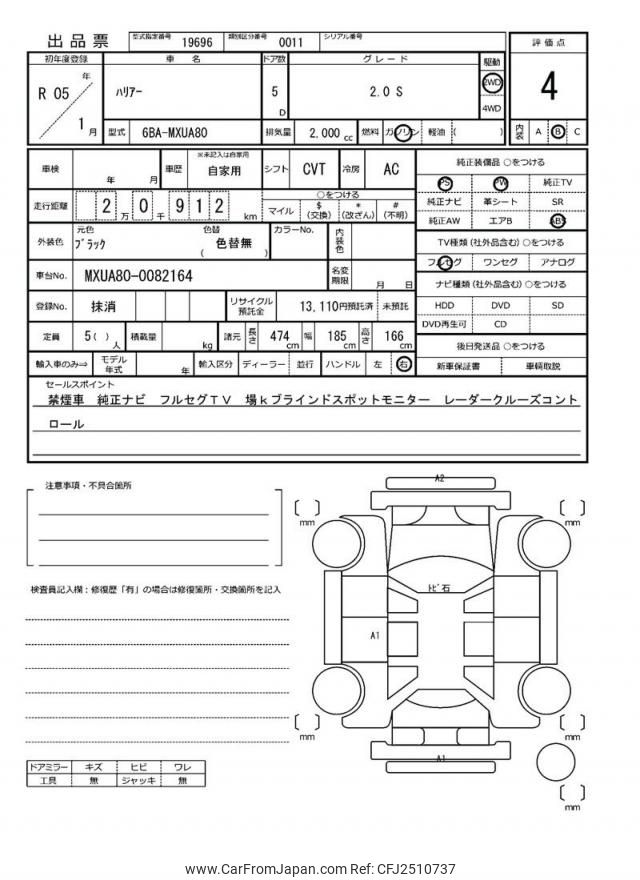 出品票 型式指定番号 19696 類別区分番号 0011 シリアル番号
初年度登録 車名 ドア数 グレード 駆動 評価点
R 05 年 1 月 ハリアー 5 D 2.0 S 2WD 4WD 4
型式 6BA-MXUA80 排気量 2,000 cc 燃料 ガソリン 軽油 ( ) 内装 A B C
車検 年 月 車歴 ※未記入は自家用 自家用 シフト CVT 冷房 AC
走行距離 2 万 0 千 9 1 2 km ○をつける マイル $ (交換) * (改ざん) # (不明)
外装色 元色 ブラック 色替 ( 色替無 ) カラーNo. 内装色
車台No. MXUA80-0082164 名変期限 月 日
登録No. 抹消 リサイクル預託金 13,110円預託済 未預託
定員 5( )人 積載量 kg 諸元 長さ 474 cm 幅 185 cm 高さ 166 cm
輸入車のみ⇒ モデル年式 年 輸入区分 ディーラー 並行 ハンドル 左 右
純正装備品 ○をつける
PS PW 純正TV
純正ナビ 革シート SR
純正AW エアB ABS
TV種類(社外品含む)○をつける
フルセグ ワンセグ アナログ
ナビ種類(社外品含む)○をつける
HDD DVD SD
DVD再生可 CD
後日発送品 ○をつける
新車保証書 車輌取説
セールスポイント
禁煙車 純正ナビ フルセグTV 場kブラインドスポットモニター レーダークルーズコント
ロール
注意事項・不具合箇所
検査員記入欄：修復歴「有」の場合は修復箇所・交換箇所を記入
A2
mm
mm
トビ石
A1
mm
mm
A1
mm
ドアミラー キズ ヒビ ワレ
工具 無 ジャッキ 無
www.CarFromJapan.com Ref: CFJ2510737